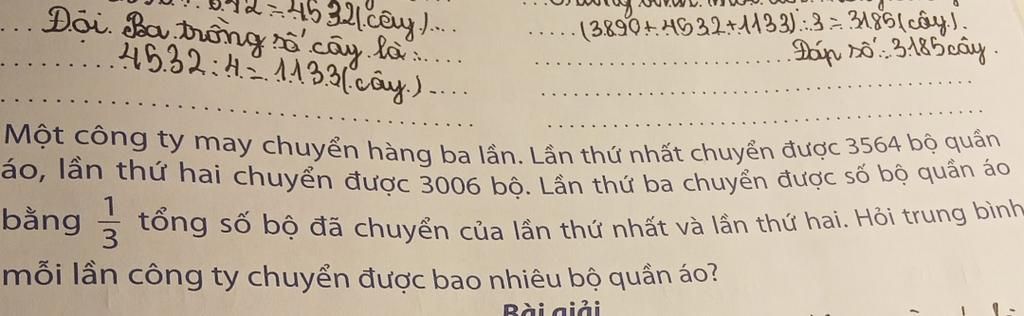 = 4532 (cây)
Đội Ba trồng số cây là:
4532 : 4 = 1133 (cây)
(3890 + 4532 + 1133) : 3 = 3185 (cây).
Đáp số: 3185 cây.
Một công ty may chuyển hàng ba lần. Lần thứ nhất chuyển được 3564 bộ quần
áo, lần thứ hai chuyển được 3006 bộ. Lần thứ ba chuyển được số bộ quần áo
bằng 1/3 tổng số bộ đã chuyển của lần thứ nhất và lần thứ hai. Hỏi trung bình
mỗi lần công ty chuyển được bao nhiêu bộ quần áo?
Bài giải